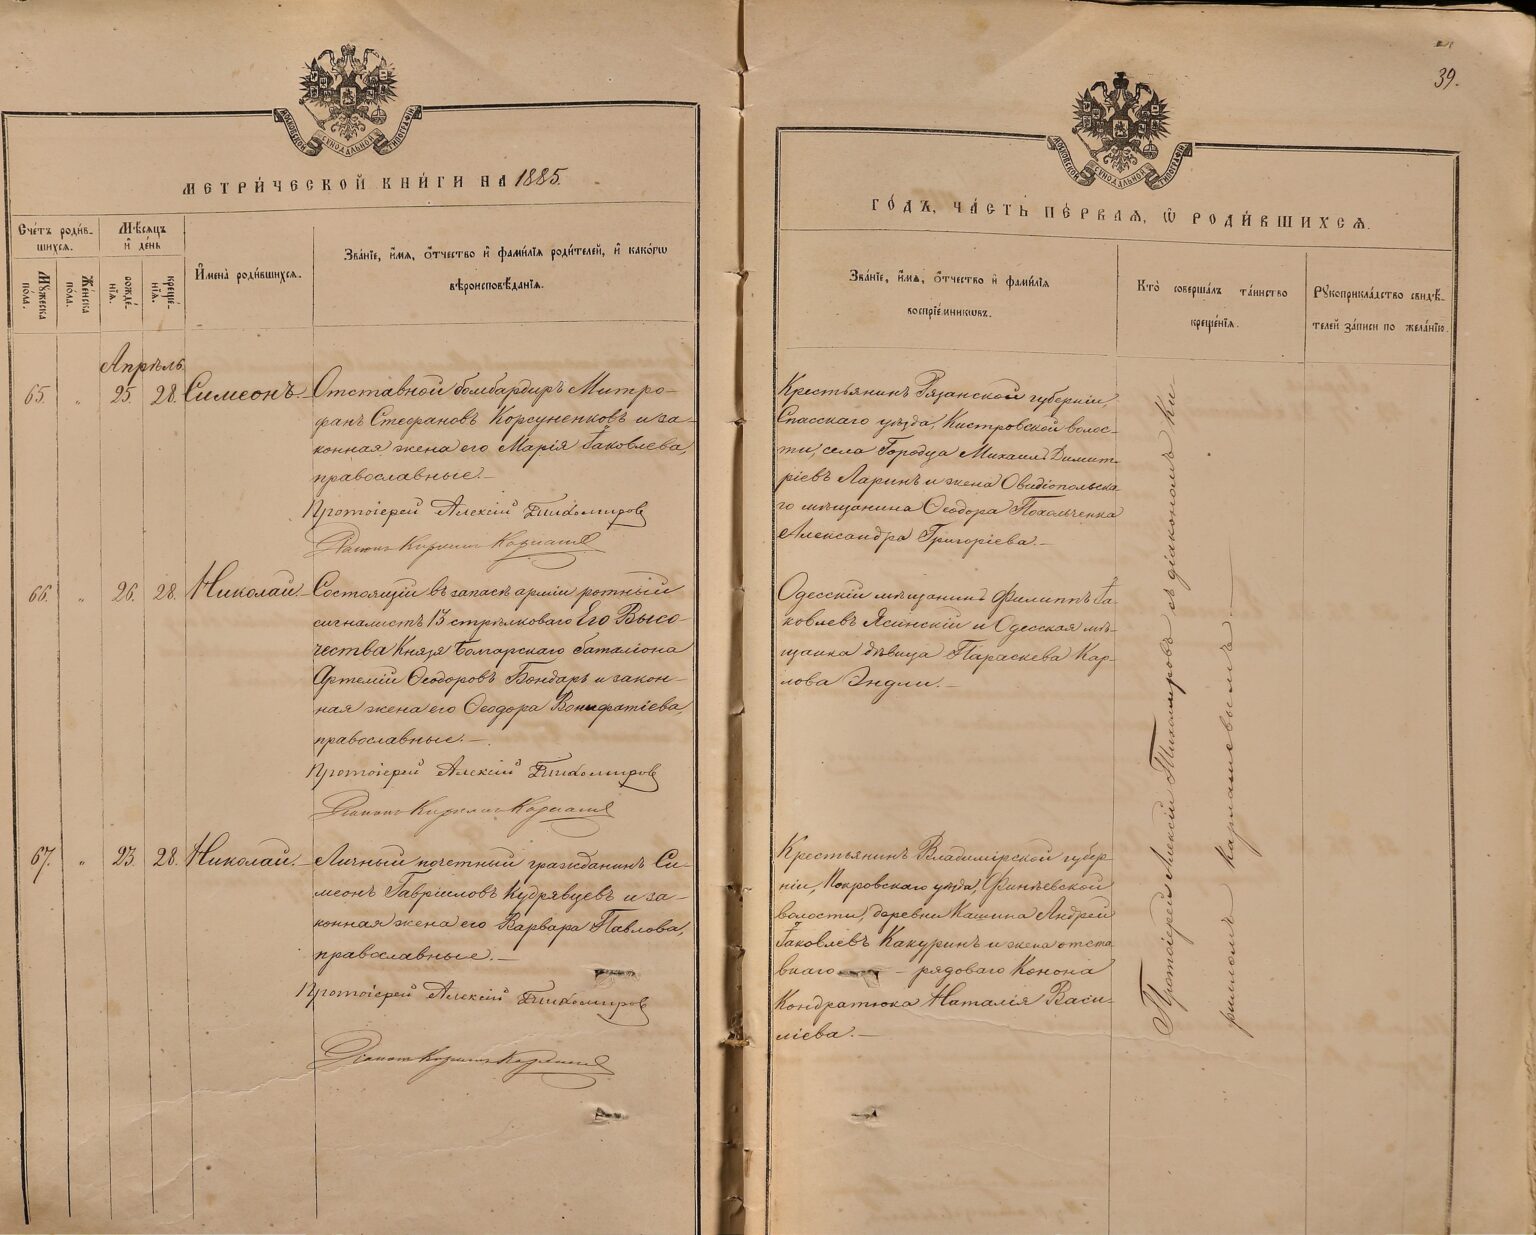 МОСКОВСКОЙ СѴНОДАЛЬНОЙ ТИПОГРАФІИ
МЕТРИ́ЧЕСКОЙ КНИ́ГИ НА 1885.
Сче́тъ роди́в-
шихсѧ.
Мѣ́сяцъ
и҆ де́нь
И҆мена̀ роди́вшихсѧ.
Зва́нїе, и҆́мѧ, ѻ҆́тчество и҆ фами́лїѧ роди́телей, и҆ како́гѡ
вѣроисповѣ́данїѧ.
Мꙋ́жеска
по́ла.
Же́нска
по́ла.
рожде́-
нїѧ.
креще́-
нїѧ.
Апрѣль
65. „ 25. 28. Симеонъ.— Отставной бомбардиръ Митро-
фанъ Стефановъ Корсуненковъ и за-
конная жена его Марія Іаковлева,
православные.—
Протоіерей Алексій Тихомировъ
Діаконъ Кириллъ
66. „ 26. 28. Николай.— Состоящій въ запасѣ арміи ротный
сигналистъ 13 стрѣлковаго Его Высо-
чества Князя Болгарскаго баталіона
Артемій Ѳеодоровъ Бондарь и закон-
ная жена его Ѳеодора Вонифатіева,
православные.—
Протоіерей Алексій Тихомировъ
Діаконъ Кириллъ
67. „ 23. 28. Николай.— Личный почетный гражданинъ Си-
меонъ Гавріиловъ Кудрявцевъ и за-
конная жена его Варвара Павлова,
православные.—
Протоіерей Алексій Тихомировъ
Діаконъ Кириллъ
39.
МОСКОВСКОЙ СѴНОДАЛЬНОЙ ТИПОГРАФІИ
ГО́ДЪ, ЧА́СТЬ ПЕ́РВАѦ, Ѡ҆ РОДИ́ВШИХСѦ.
Зва́нїе, и҆́мѧ, ѻ҆́тчество и҆ фами́лїѧ
воспрїе́мникѡвъ.
Кто̀ соверша́лъ та́инство
креще́нїѧ.
Рꙋкоприкла́дство свидѣ́-
телей за́писи по жела́нїю.
Крестьянинъ Рязанской губерніи,
Спасскаго уѣзда, Кистровской волос-
ти, села Городца Михаилъ Димит-
ріевъ Ларинъ и жена Овидіопольска
го мѣщанина Ѳеодора Похольченка
Александра Григоріева.—
Одесскій мѣщанинъ Филиппъ Іа-
ковлевъ Ясинскій и Одесская мѣ-
щанка дѣвица Параскева Кар-
лова Эндли.—
Крестьянинъ Владимірской губер-
ніи, Покровскаго уѣзда, Финѣевской
волости, деревни Кашина Андрей
Іаковлевъ Какуринъ и жена отста
внаго — рядоваго Конона
Кондратюка Наталія Васи-
ліева.—
Протоіерей Алексій Тихомировъ съ діакономъ Ки-
рилломъ